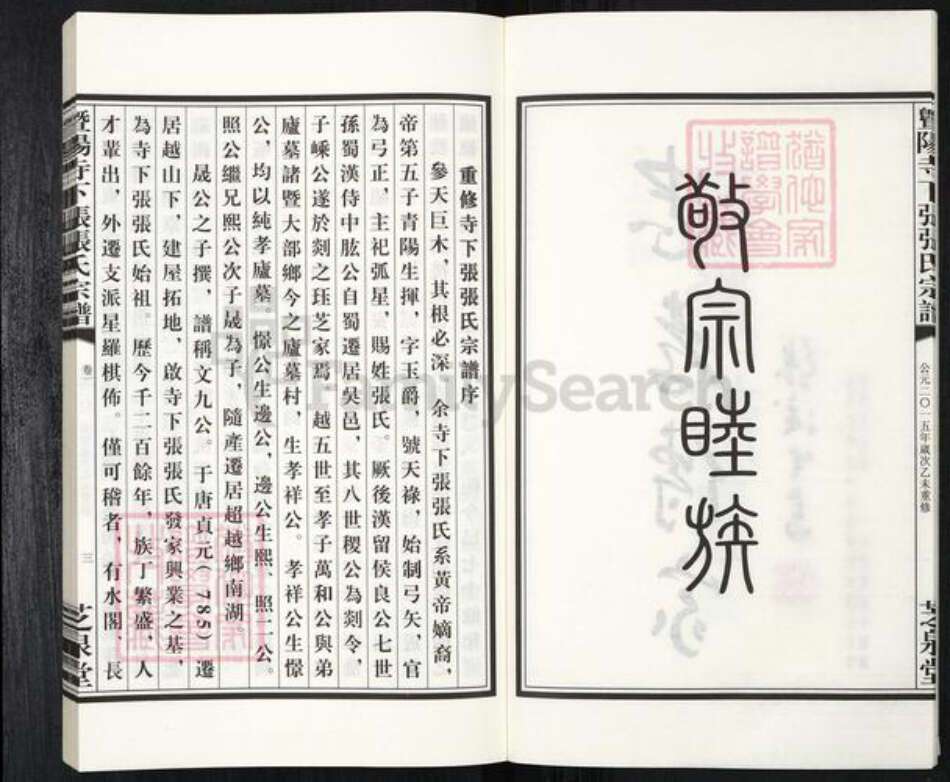 暨陽寺下張張氏宗譜
公元二〇一五年歲次乙未重修
芝泉堂
敬宗睦族
重修寺下張張氏宗譜序
參天巨木，其根必深 余寺下張張氏系黃帝嫡裔，
帝第五子青陽生揮，字玉爵，號天祿，始制弓矢，官
為弓正，主祀弧星，賜姓張氏。厥後漢留侯良公七世
孫蜀漢侍中肱公自蜀遷居吳邑，其八世稷公為剡令，
子嵊公遂於剡之珏芝家焉 越五世至孝子萬和公與弟
廬墓諸暨大部鄉今之廬墓村，生孝祥公。孝祥公生憬
公，均以純孝廬墓。憬公生邊公，邊公生熙、照二公。
照公繼兄熙公次子晟為子，隨產遷居超越鄉南湖。
晟公之子撰，譜稱文九公。于唐貞元（785）遷
居越山下，建屋拓地，啟寺下張張氏發家興業之基，
為寺下張張氏始祖。歷今千二百餘年，族丁繁盛，人
才輩出，外遷支派星羅棋佈。僅可稽者，有水閣、長
暨陽寺下張張氏宗譜
卷一
三
芝泉堂
FamilySearch